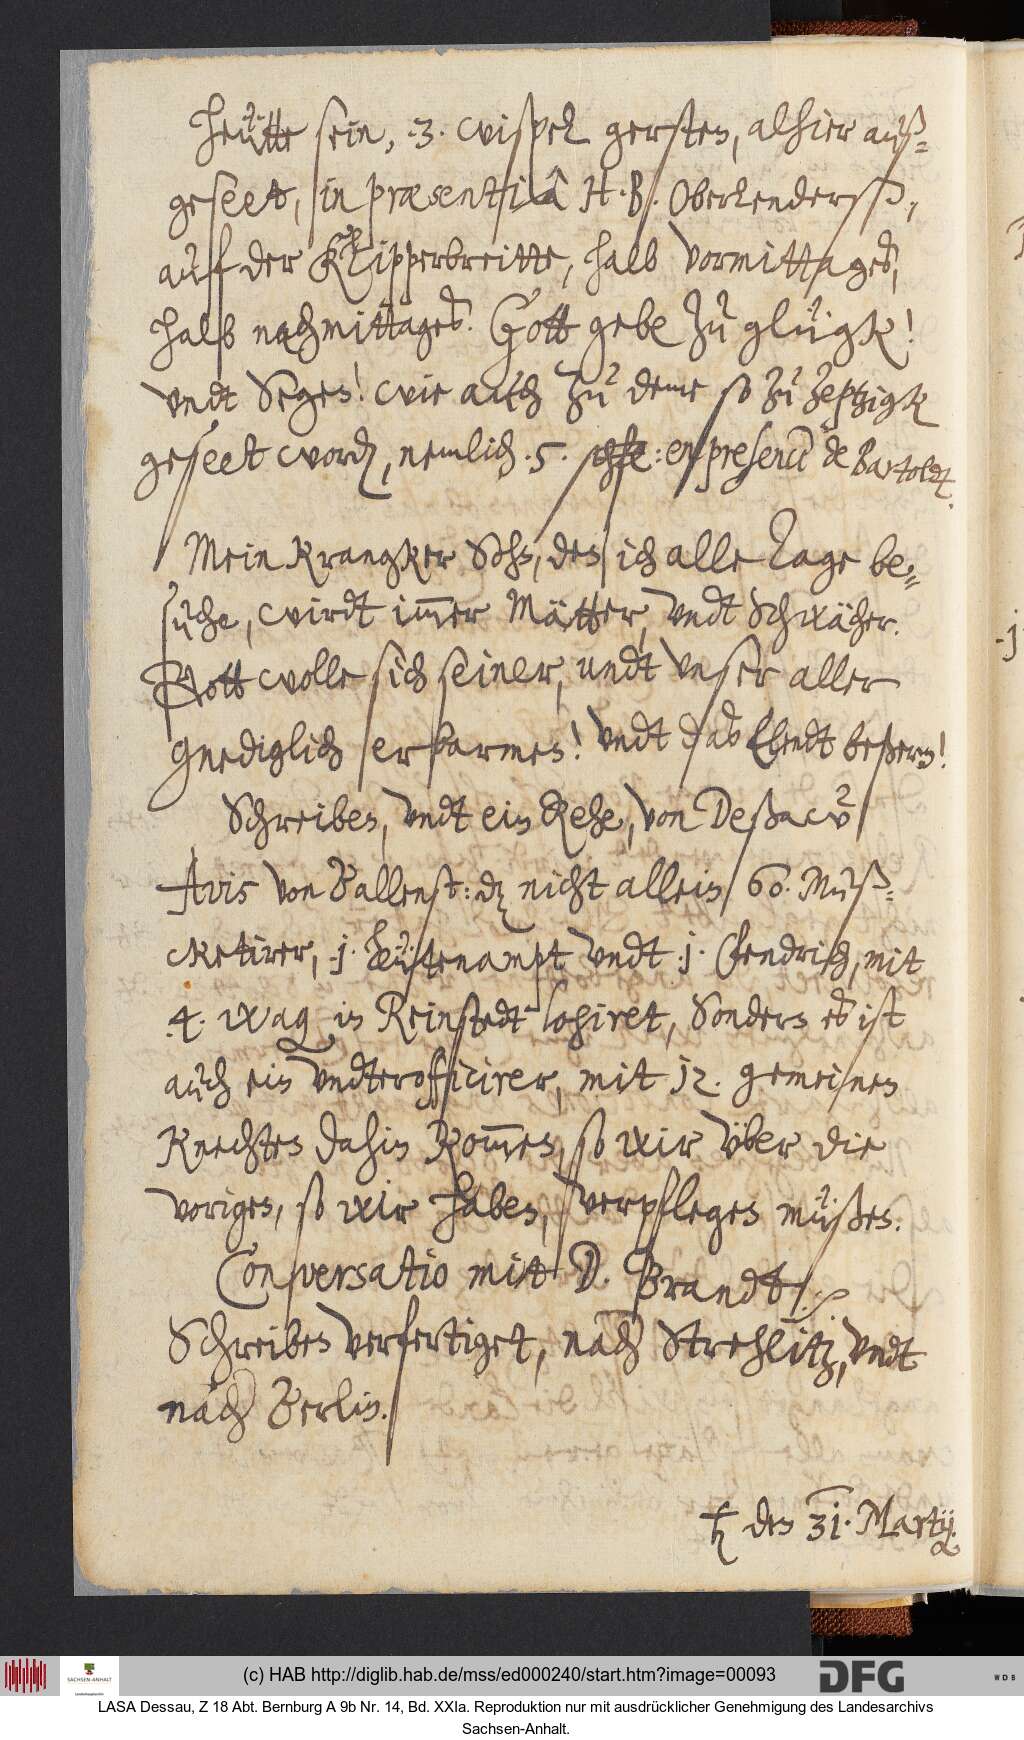 heütte sein, .3. wispel gersten, alhier auß=
geseet, in præsentiâ H. B. Oberlenderß,
auf der Klipperbreitte, halb vormittages,
halb nachmittages. Gott gebe zu glügk!
vndt Segen! wie auch zu deme so zu Zeptzigk
geseet word, nemlich .5. schfl: en presence de Bartoldt.
Mein Krangker Sohn, den ich alle Tage be=
suche, wirdt im̅er Mätter, vndt Schwächer.
Gott wolle sich seiner, undt vnser aller
gnediglich erbarmen! vndt das Elendt beßern!
Schreiben, vndt ein Rehe, von Deßaw
Avis von Ballenst: dz nicht allein 60. Muß=
cketirer, .1. Leütenampt vndt .1. Fendrich, mit
.4. wag in Reinstedt logiret, Sondern es ist
auch ein vndterofficirer, mit 12. gemeinen
Knechten dahin kom̅en, so wir vber die
vorigen, so wir haben, verpflegen müßen.
Conversatio mit D. Brandt.
Schreiben verfertiget, nach Strehlitz, vndt
nach Berlin.
♄ den 31. Martij.
(c) HAB http://diglib.hab.de/mss/ed000240/start.htm?image=00093
SACHSEN-ANHALT
DFG
WDB
LASA Dessau, Z 18 Abt. Bernburg A 9b Nr. 14, Bd. XXIa. Reproduktion nur mit ausdrücklicher Genehmigung des Landesarchivs
Sachsen-Anhalt.